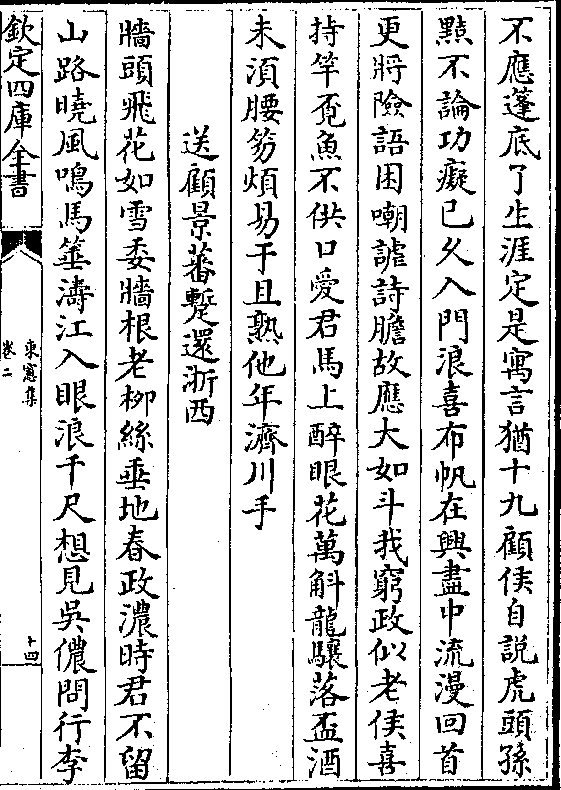 不應蓬底了生涯定是寓言猶十九顧侯自說虎頭孫
黠不論功癡已久入門浪喜布帆在興盡中流漫回首
更將險語困嘲謔詩膽故應大如斗我窮政似老侯喜
持竿覔魚不供口愛君馬上醉眼花萬斛龍驤落盃酒
未須腰笏煩易于且熟他年濟川手
送顧景蕃蹔還浙西
牆頭飛花如雪委牆根老栁絲垂地春政濃時君不留
山路曉風鳴馬箠濤江入眼浪千尺想見吳儂問行李
欽定四庫全書
東窻集
卷二
十四